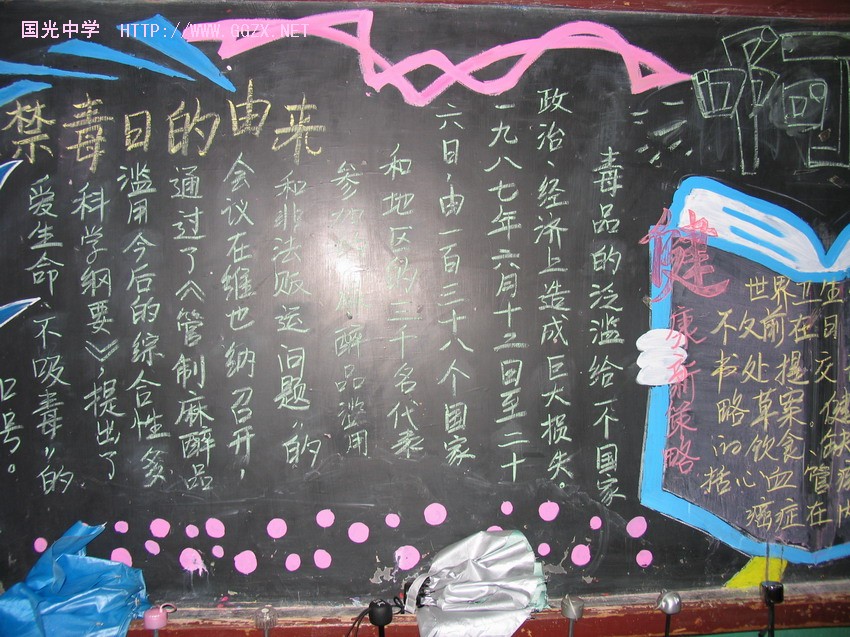 国光中学 HTTP://WWW.GGZX.NET
禁毒日的由来
毒品的泛滥给一个国家
政治、经济上造成巨大损失。
一九八七年六月十二日至二十
六日，由一百三十八个国家
和地区的三千名代表
参加的麻醉品滥用
和非法贩运问题，的
会议在维也纳召开，
通过了《管制麻醉品
滥用今后的综合性多
科学纲要》，提出了
爱生命，不吸毒”的
口号。
健
康新策略
世界卫生
不久前在日
书处提交
略草案。健
的饮食、缺
括心血管疾
癌症在内